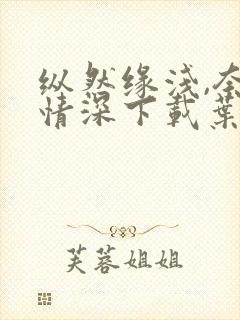 纵然缘浅,奈
情深下載葉
芙蓉姐姐